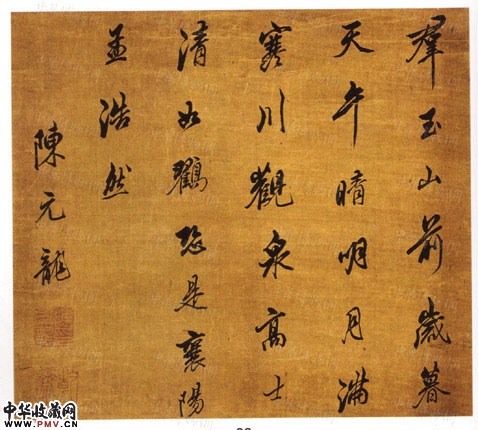 羣玉山前歲暮
天乍晴明月滿
寒川觀泉高士
清如鶴恐是襄陽
孟浩然
陳元龍
中华收藏网
WWW.PMV.CN